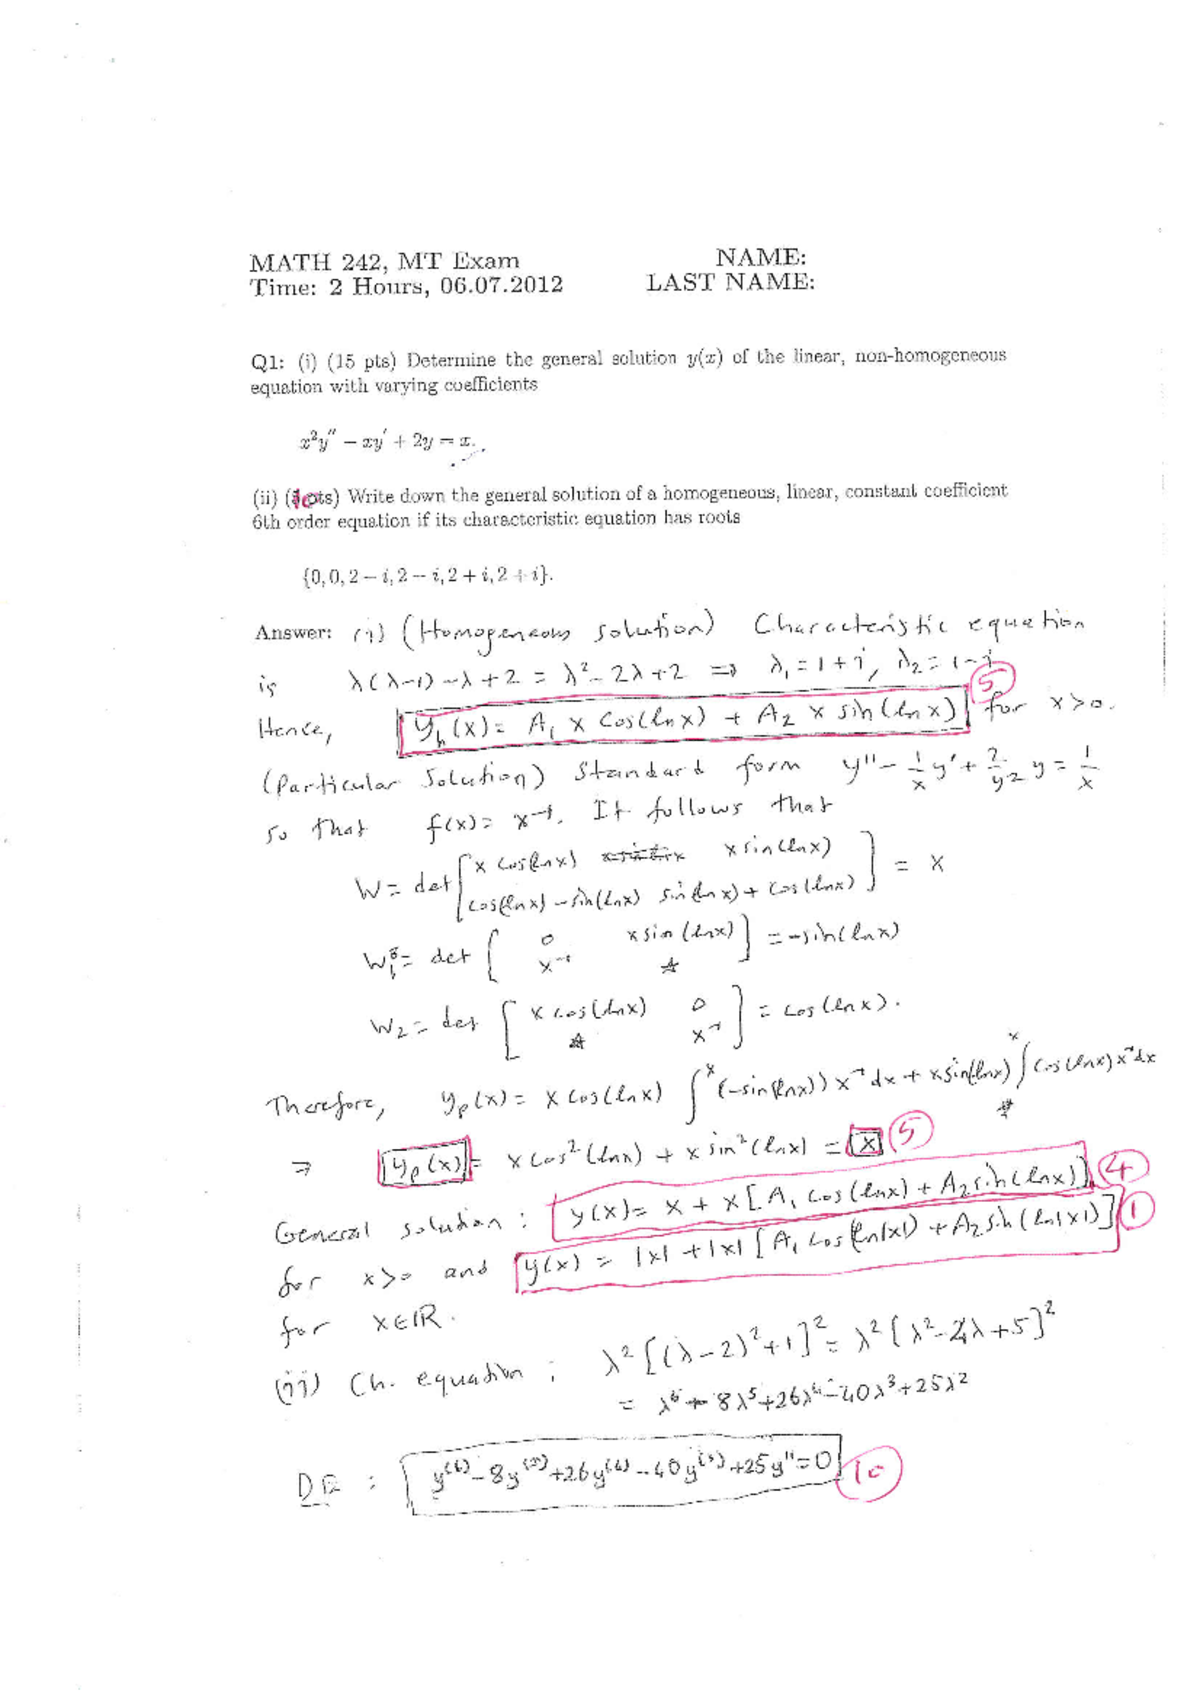 MATH 242, MT Exam NAME:
Time: 2 Hours, 06.07.2012 LAST NAME:
Q1: (i) (15 pts) Determine the general solution y(x) of the linear, non-homogeneous
equation with varying coefficients
x²y'' − xy' + 2y = x.
(ii) (10pts) Write down the general solution of a homogeneous, linear, constant coefficient
6th order equation if its characteristic equation has roots
{0, 0, 2 − i, 2 − i, 2 + i, 2 + i}.
Answer: (i) (Homogeneous solution) Characteristic equation
is λ(λ-1) - λ + 2 = λ² - 2λ + 2 ⇒ λ₁ = 1 + i, λ₂ = 1 - i
5
Hence, y_h(x) = A₁ x cos(ln x) + A₂ x sin(ln x) for x>0.
(Particular Solution) Standard form y'' - 1/x y' + 2/x² y = 1/x
so that f(x) = x⁻¹. It follows that
W = det [ x cos(ln x) x sin(ln x)
cos(ln x) - sin(ln x) sin(ln x) + cos(ln x) ] = x
W₁ = det [ 0 x sin(ln x)
x⁻¹ ☆ ] = -sin(ln x)
W₂ = det [ x cos(ln x) 0
☆ x⁻¹ ] = cos(ln x).
Therefore, y_p(x) = x cos(ln x) ∫ˣ (-sin(ln x)) x⁻¹ dx + x sin(ln x) ∫ˣ cos(ln x) x⁻¹ dx
⇒ y_p(x) = x cos²(ln x) + x sin²(ln x) = x 5
General solution: y(x) = x + x [A₁ cos(ln x) + A₂ sin(ln x)] 4
for x>0 and y(x) = |x| + |x| [A₁ cos(ln|x|) + A₂ sin(ln|x|)] 1
for x∈ℝ.
(ii) Ch. equation: λ² [(λ-2)² + 1]² = λ² [λ² - 4λ + 5]²
= λ⁶ - 8λ⁵ + 26λ⁴ - 40λ³ + 25λ²
DE: y⁽⁶⁾ - 8y⁽⁵⁾ + 26y⁽⁴⁾ - 40y⁽³⁾ + 25y'' = 0 10